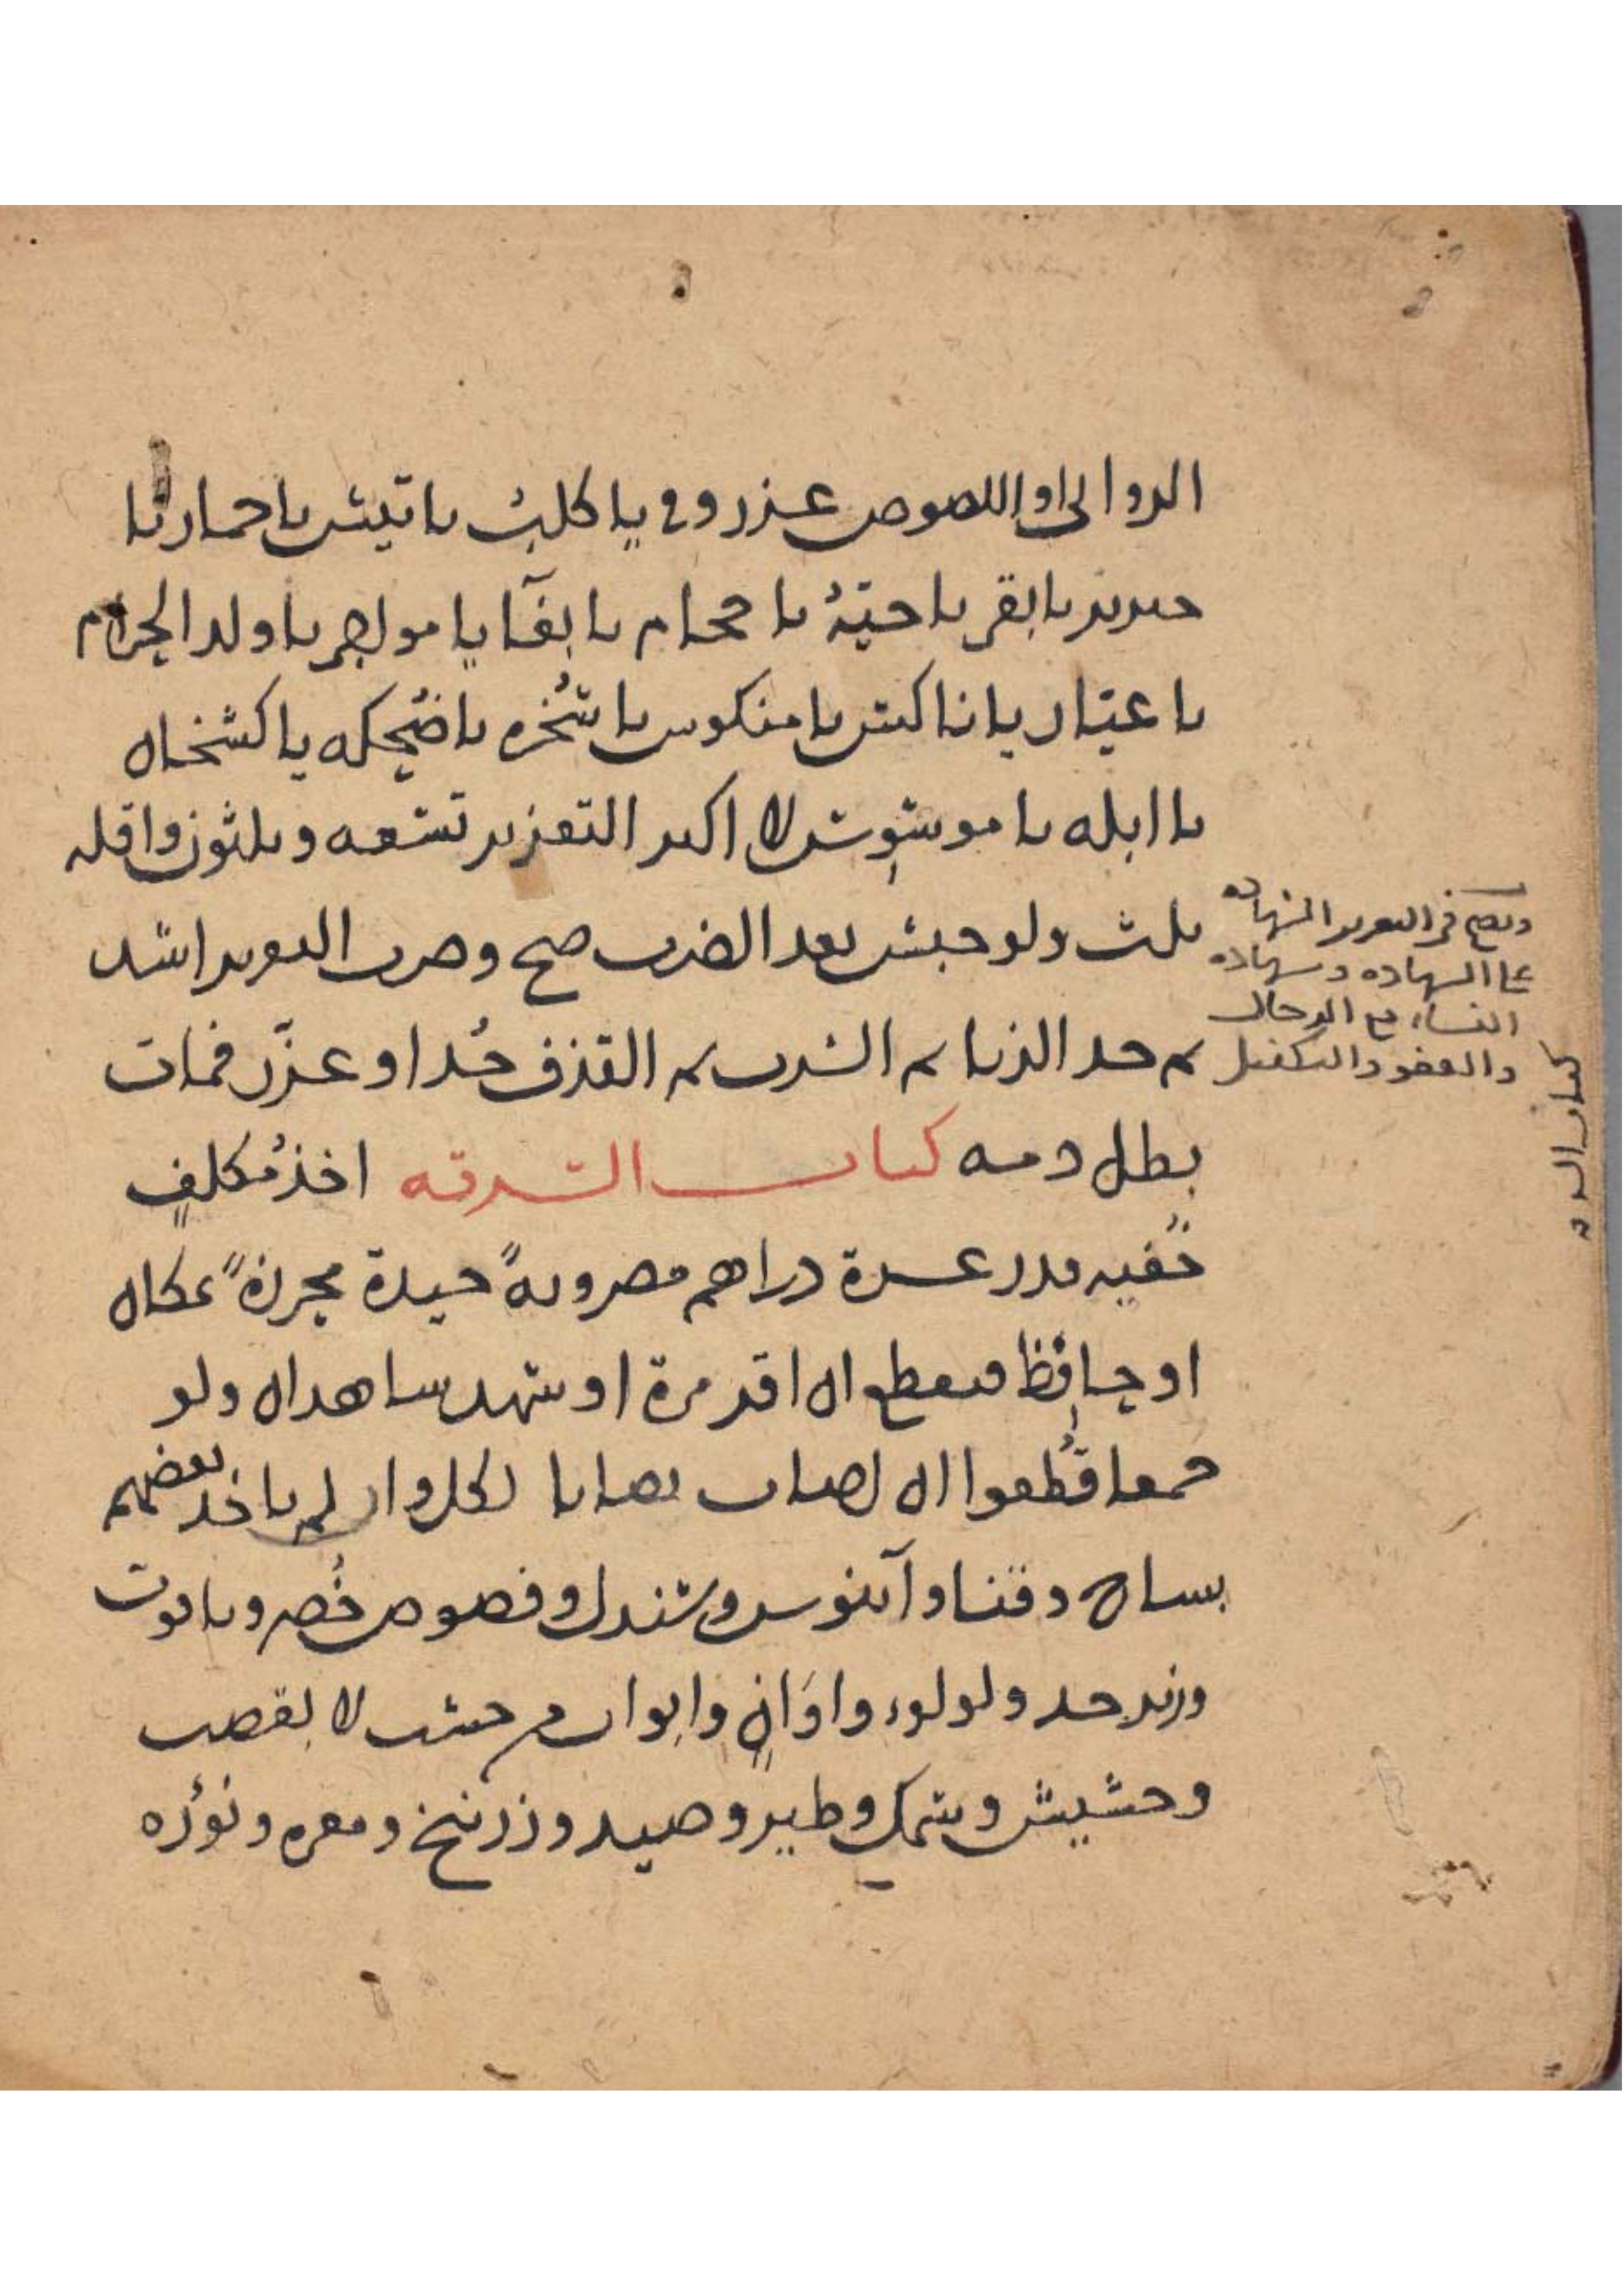 الزواني او اللصوص عزر وفي يا كلب يا تيس يا حمار يا
خنزير يا بقر يا حية يا حجام يا بغا يا مواجر يا ولد الحرام
يا عيار يا ناكس يا منكوس يا سخره يا ضحكه يا كشخان
يا ابله يا موسوس لا اكبر التعزير تسعه وثلثون واقله
ثلث ولو حبس بعد الضرب صح وضرب التعزير اشد
ثم حد الزنا ثم الشرب ثم القذف حد او عزر فمات
بطل دمه كتاب السرقه اخذ مكلف
خفيه قدر عشرة دراهم مضروبة جيدة محرزة بمكان
او حافظ فيقطع ان اقر مرة او شهد شاهدان ولو
جمعا قطعوا ان اصاب نصابا لكل وان لم ياخذ بعضهم
بساج وقنا وآبنوس وصندل وفصوص خضر وياقوت
وزبرجد ولولوء واوان وابواب من خشب لا بقصب
وحشيش وسمك وطير وصيد وزرنيخ ومغره ونوره
ويصح في التعزير الشهاده
على الشهاده وشهاده
النساء مع الرجال
والعفو والتكفيل